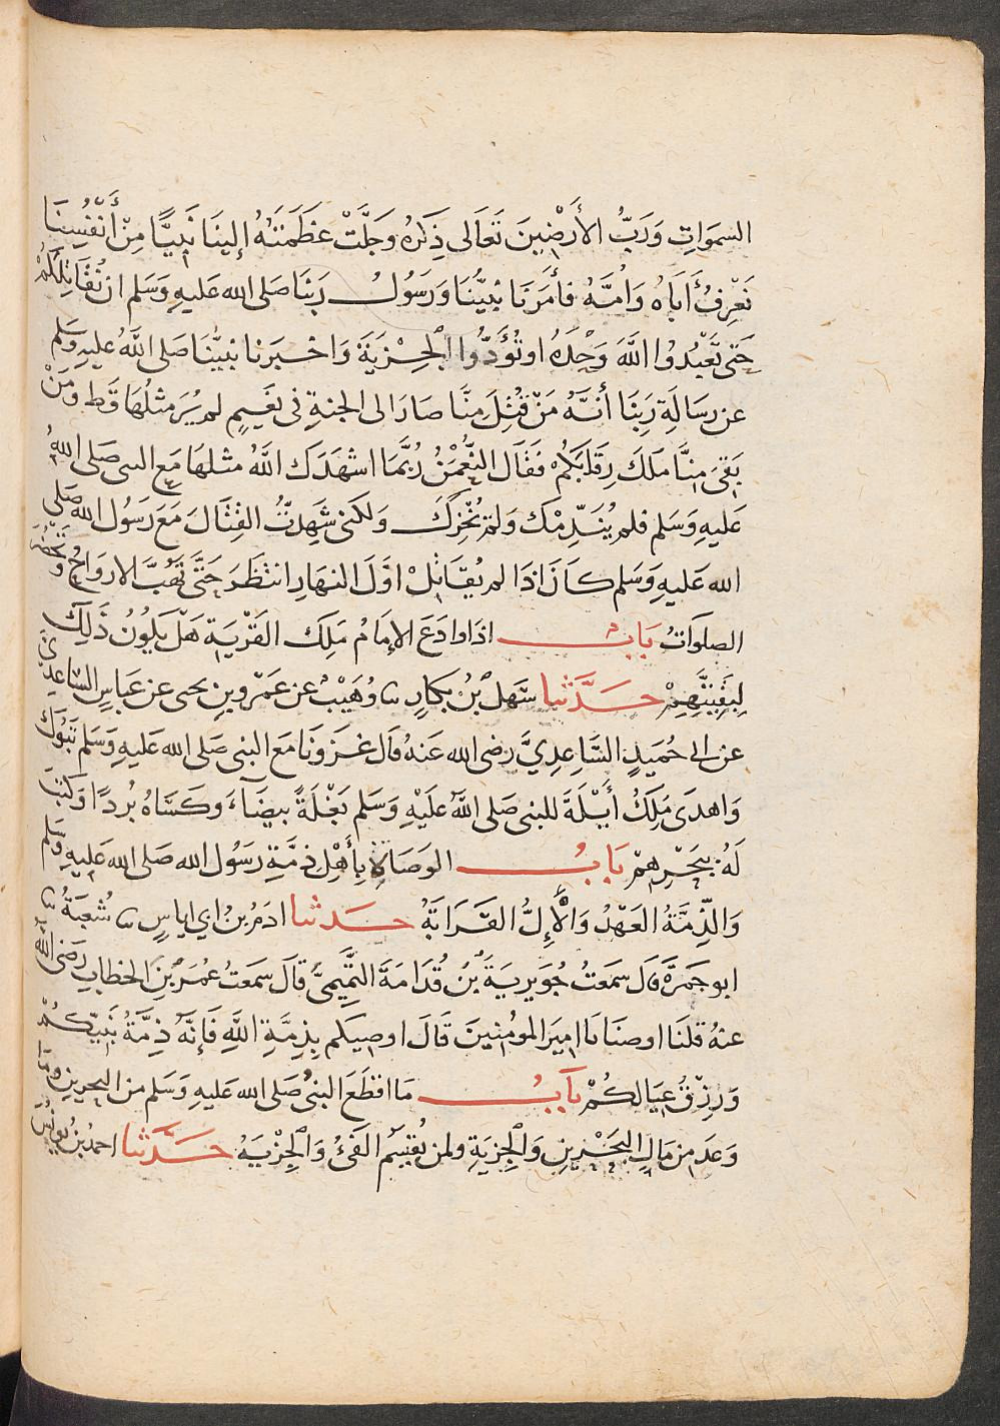 السموَاتِ وَرَبُّ الأَرَضْينَ تَعَالَى ذِكرُه وَجلَّتْ عَظَمَتَهُ إِلينَا نَبِيًّا مِنْ أَنْفُسِنَا
نَعْرِفُ أَبَاهُ وَامُّهُ فأَمَرَنَا نبيُّنَا وَرَسُولُ رَبِّنَا صَلى الله عَليهِ وَسَلم ان نُقَاتِلَكُمْ
حَتى تَعْبُدُوا اللَّهَ وَحْدَهُ اوتُؤَدُّوا الْجِزْيَةَ وَاخبَرنا نبيُّنَا صَلى اللَّهُ عليهِ وَسَلم
عن رسَالَةِ رَبِّنَا أنَّهُ مَنْ قُتِلَ مِنَّا صَارَ الى الجنةِ في نَعيمٍ لم يُرَ مثلُهَا قَط ومَنْ
بَقِىَ مِنَّا مَلَكَ رِقَابَكُمْ فقَال النُّعْمٰنُ رُبَّمَا اشهَدَك اللَّهُ مثلهَا مَع النبى صَلى اللهُ
عَليهِ وَسَلم فلم يُنَدِّمْكَ وَلمْ يُخْزِكَ وَلكنى شَهِدتُّ القِتَالَ مَعَ رَسُول الله صَلى
الله عَليهِ وَسَلم كَانَ اذَا لم يُقَاتِلْ اوَّلَ النهَارِ انتَظَرَ حَتَّى تَهُبَّ الارْوَاحُ وَتَحْضُرَ
الصلوَاتُ بَابٌ اذَا وادَعَ الإِمَامُ مَلِكَ القَرْيَةِ هَلْ يَكُونُ ذَلِكَ
لِبَقِيَّتِهِمْ حَدَّثنا سَهلُ بْنُ بَكارٍ نا وُهَيْبٌ عن عَمْرِو بنِ يحيى عن عَباسٍ السَّاعدِيّ
عن ابى حُمَيدٍ السَّاعِدِيَّ رضى الله عَنهُ قال غزَونَا مَع النبى صَلى الله عَليهِ وَسَلم تَبُوكَ
وَاهدَى مَلِكُ أَيْلَةَ للنبى صَلى اللَّهُ عَلَيْهِ وَسَلم بَغْلَةً بيضَاءَ وكَسَاهُ بُردًا وَكَتَبَ
لَهُ ببَحْرِهِمْ بَابُ الوَصَاةِ بِأَهْلِ ذمَّةِ رَسُول الله صَلى الله عَليهِ وَسَلم
وَالذِّمَّةُ العَهْدُ وَالْإِلُّ القَرَابَةُ حَدثنا ادَمُ بنُ ابي اياسٍ نا شُعبَةُ نا
ابو جَمرَةَ قال سَمعتُ جُوَيريَةَ بْنُ قُدَامَةَ التَّمِيمىَّ قالَ سَمعتُ عُمَرَ بْنَ الخطابِ رَضى اللَّهُ
عنهُ قلنَا اوصنَا يَا امِيرَ المومِنينَ قالَ اوصِيكم بِذِمَّةِ اللَّهِ فَإِنَّهُ ذِمَّةُ نَبِيّكُمْ
وَرِزْقُ عِيَالكُمْ بَابُ مَا اقطَعَ النبىُّ صَلى الله عَليهِ وَسَلم من البحرينِ وَمَا
وَعَدَ مِن مَالِ البَحْرينِ وَالْجِزيَةِ ولمن يُقسَمُ الفَىْءُ وَالْجِزْيَةُ حَدَّثَنا احمدُ بنُ يُونُسَ